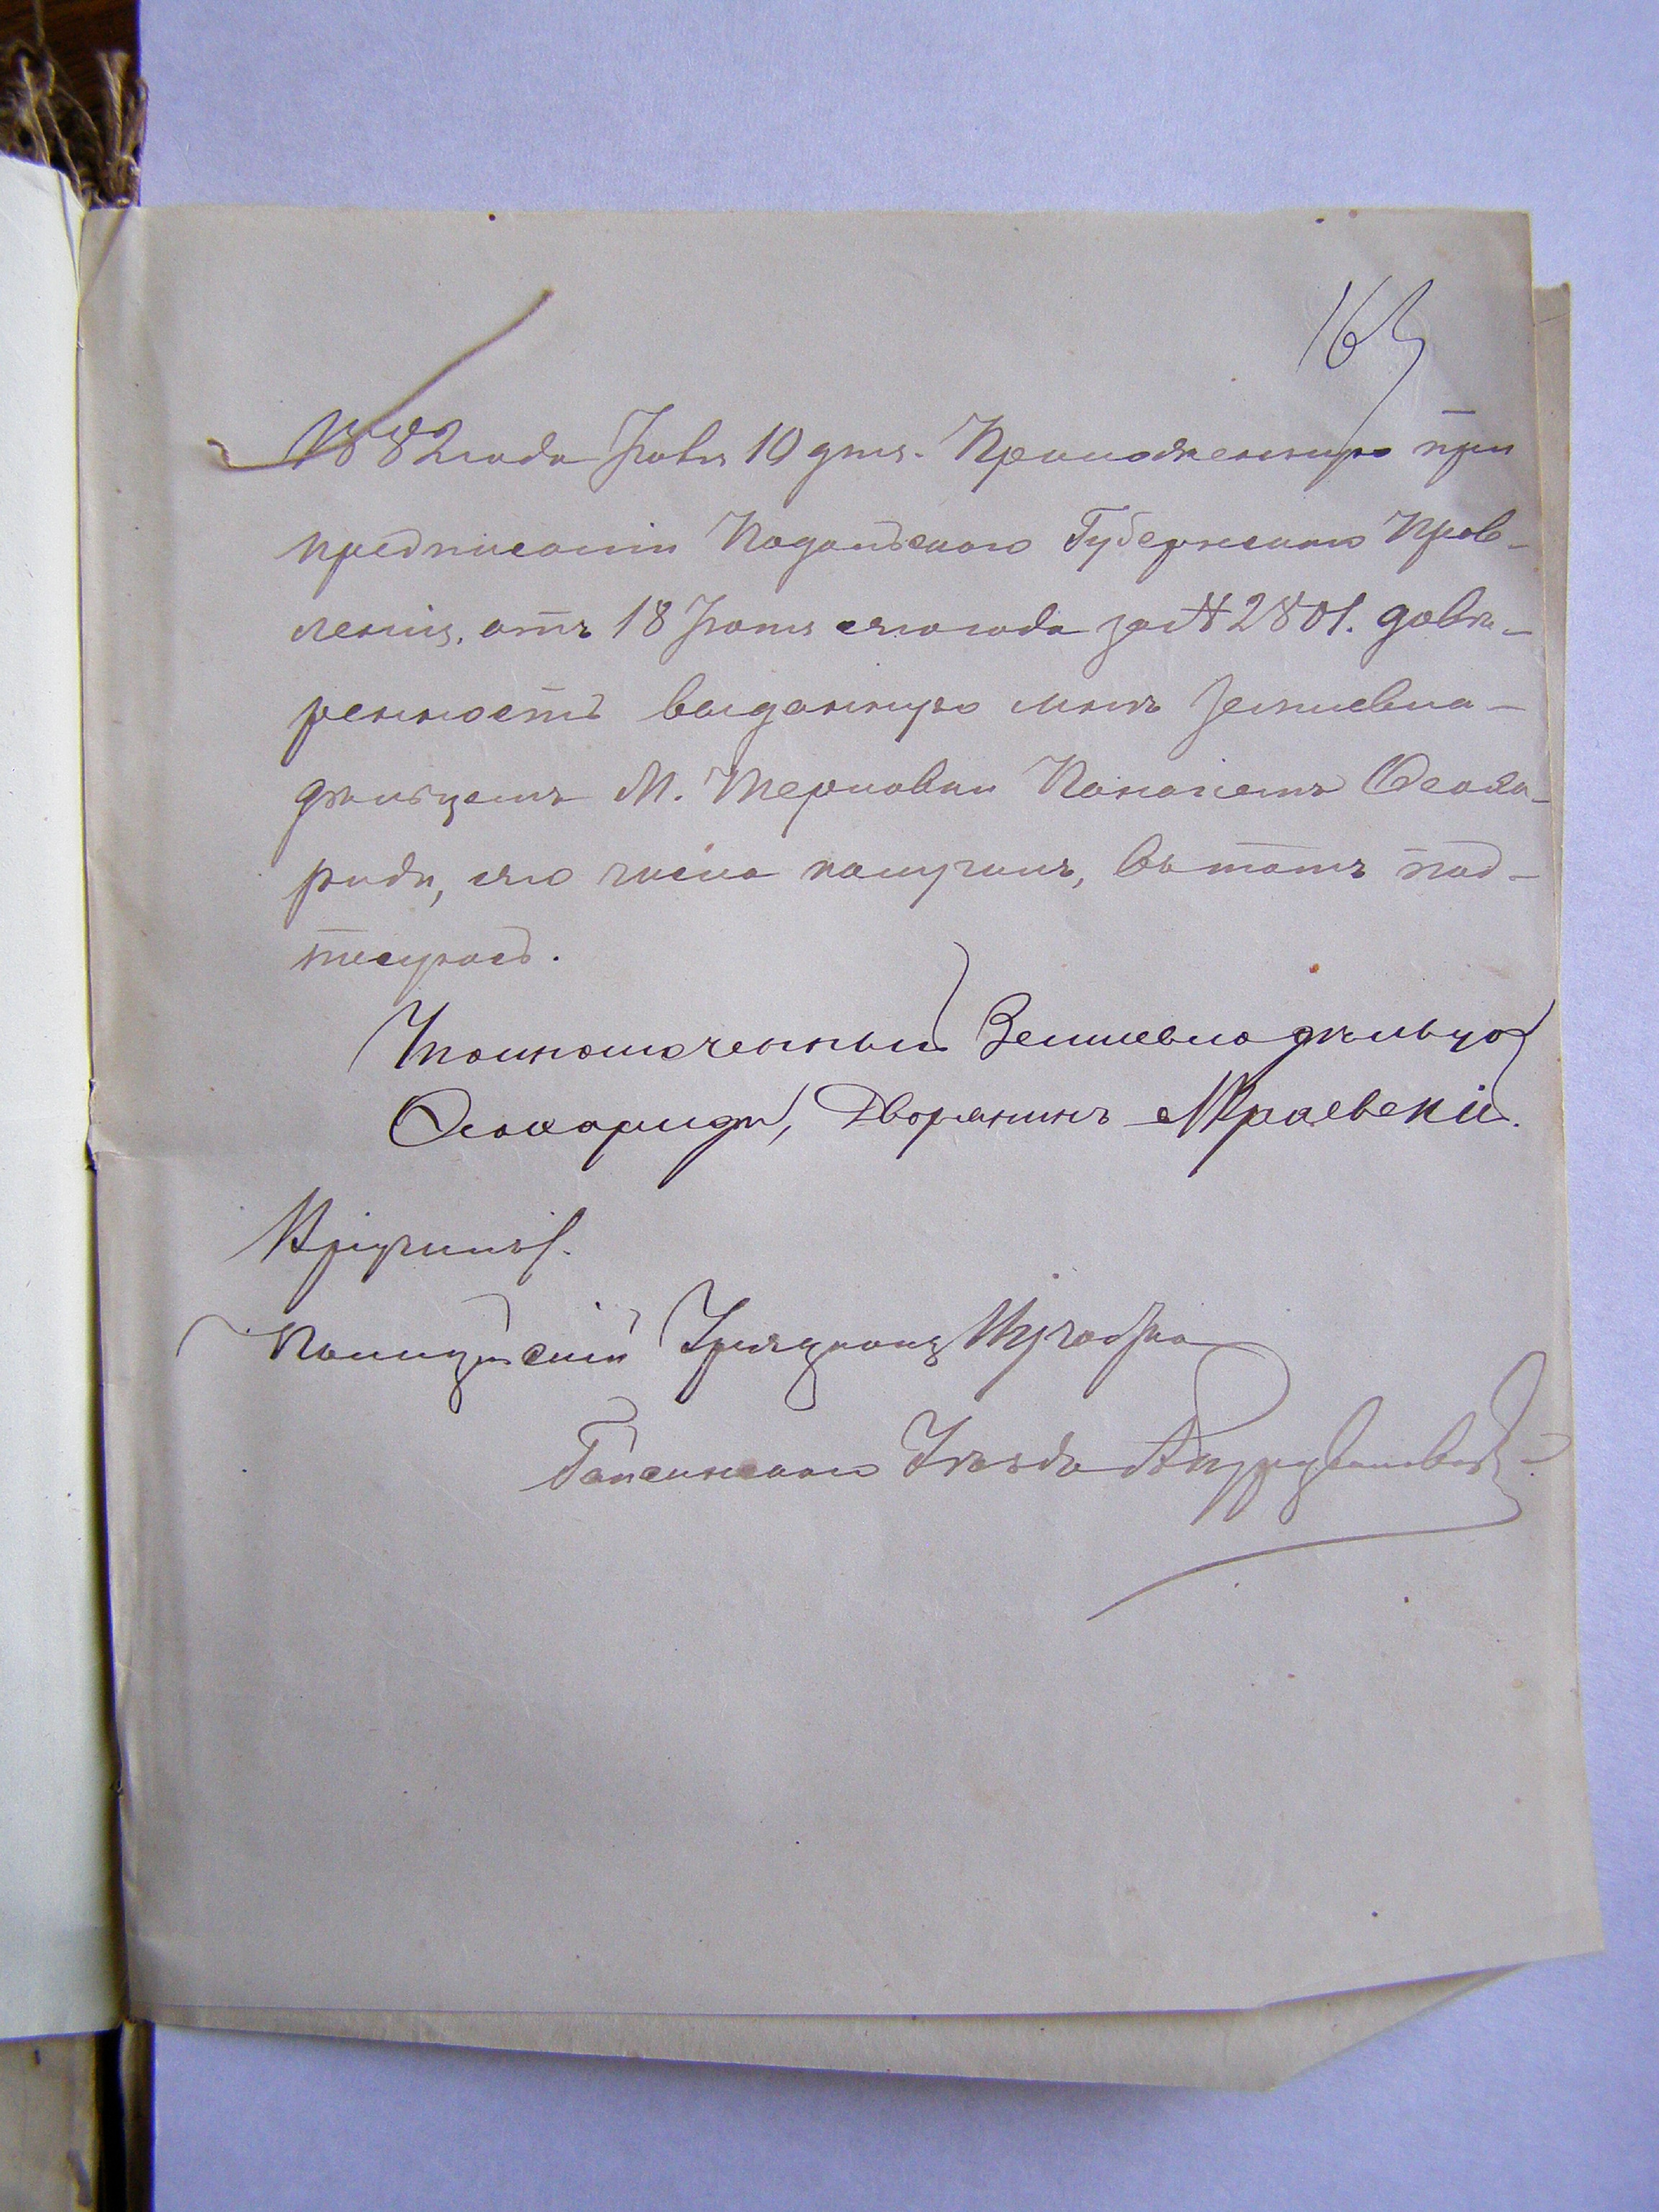 165
1882 года Іюля 10 дня. Приложенную при
предписаніи Подольскаго Губернскаго Прав-
ленія, отъ 18 Іюня сего года за № 2801. довѣ-
ренность выданную мнѣ землевла-
дѣльцемъ М. Терновки
сего числа получилъ, въ томъ под-
писуюсь.
Уполномоченный Землевладѣльца
Дворянинъ Мраевскій.
Вручилъ.
Полицейскій Урядникъ
Гайсинскаго Уѣзда